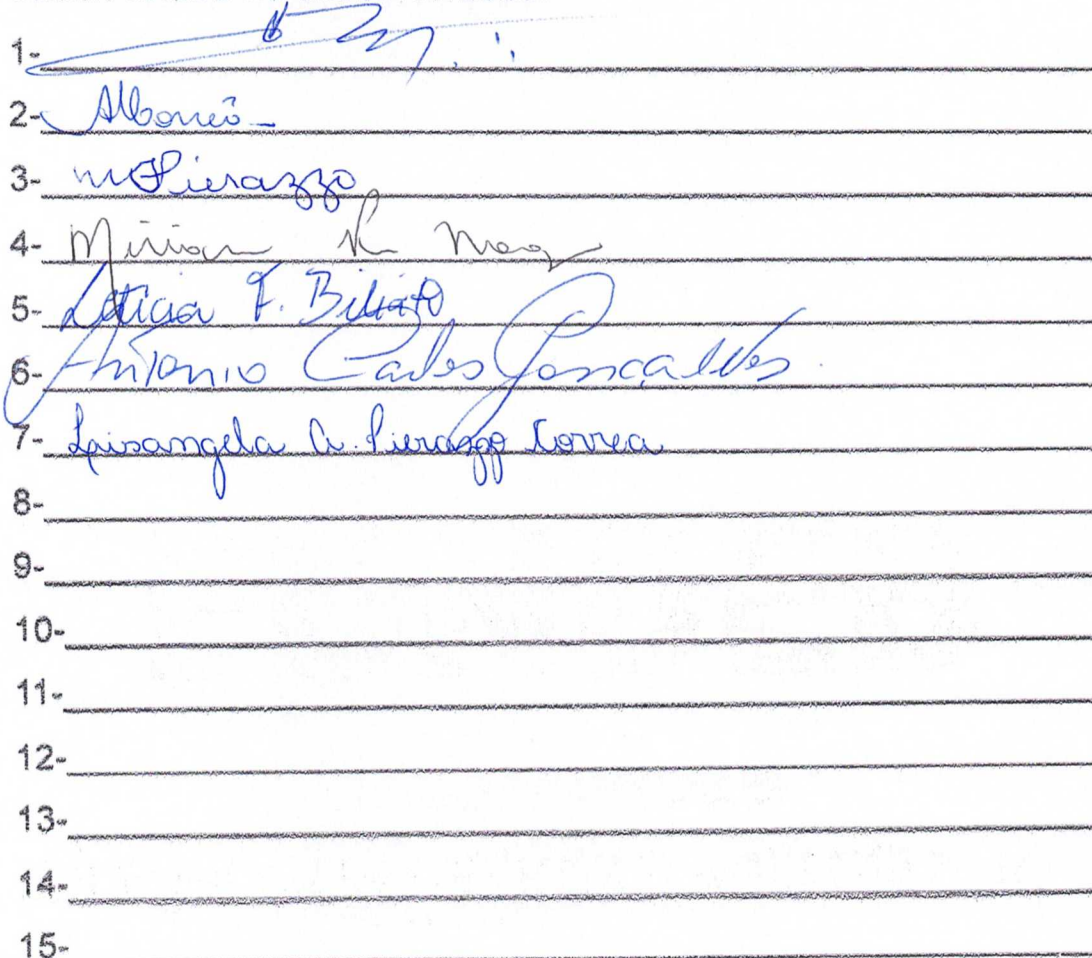 1-
2-
3- Pierazzo
4- Miriam
5- Leticia F.
6- Antonio Carlos Goncalves
7- Laisangela A. Pierazzo Correa
8-
9-
10-
11-
12-
13-
14-
15-